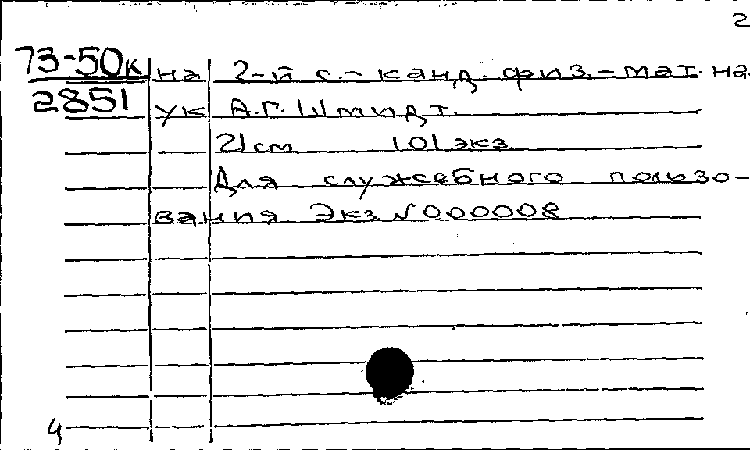 2
73-50к на 2-й с. - канд. физ.-мат. на
2851 ук А.Г. Шмидт.
21 см 101 экз
Для служебного пользо-
вания Экз №000008
4